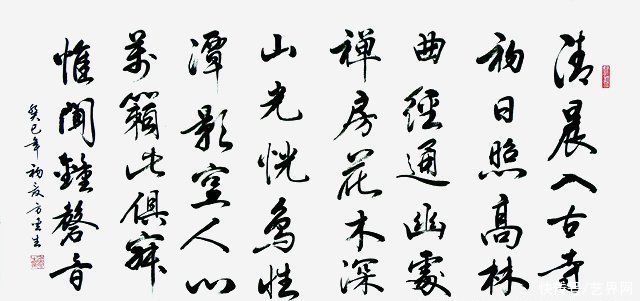 清晨入古寺
初日照高林
曲徑通幽處
禅房花木深
山光悦鳥性
潭影空人心
萬籟此俱寂
惟聞鐘磬音
癸巳年初夏方
快传号/艺界网